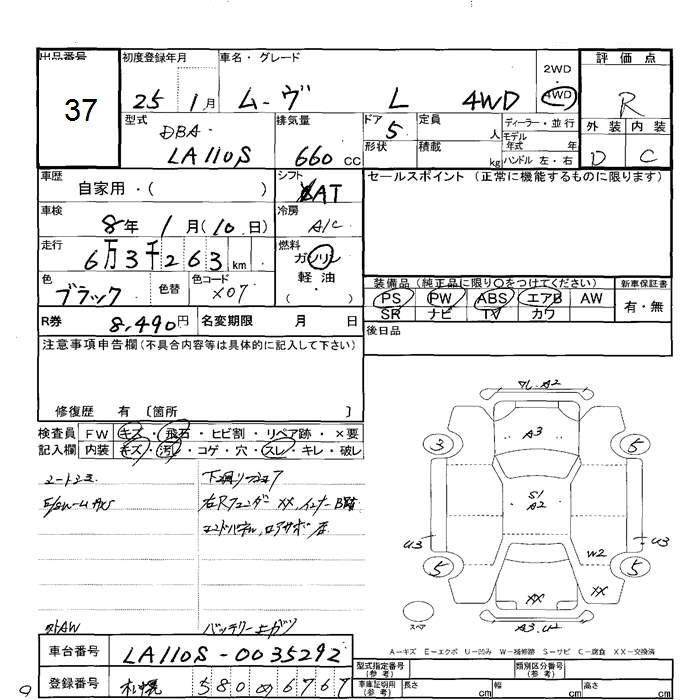 出品番号 初度登録年月 車名・グレード 2WD 評価点
37 25 1月 ムーヴ L 4WD 4WD R
型式 DBA- LA110S 排気量 660 cc ドア 5 定員 人 ディーラー・並行 外装 内装
形状 積載 kg モデル年式 年 D C
ハンドル 左・右
車歴 自家用・( ) シフト AT セールスポイント (正常に機能するものに限ります)
車検 8年 1月(10日) 冷房 A/C
走行 6万3千263km 燃料 ガソリン
軽油
( ・ )
色 ブラック 色替 色コード X07 装備品(純正品に限り○をつけてください) 新車保証書
PS PW ABS エアB AW 有・無
SR ナビ TV カワ
R券 8,490円 名変期限 月 日 後日品
注意事項申告欄(不具合内容等は具体的に記入して下さい)
修復歴 有 [箇所 ]
検査員 FW キズ・飛石・ヒビ割・リペア跡・×要
記入欄 内装 キズ・汚レ・コゲ・穴・スレ・キレ・破レ
シートシミ
右Rフェンダー XX,インナーB跡
エンドパネル,ロアサポ
社外AW バッテリー上ガリ
A2
3 A3 5
S1
A2
U3 U3
W2
5 XX XX 5
スペア A3.U2
A-キズ E-エクボ U-凹み W-補修跡 S-サビ C-腐食 XX-交換済
車台番号 LA110S-0035292
型式指定番号(参考) 類別区分番号(参考)
登録番号 札幌 580 の 6767
車庫証明用(参考) 長さ cm 幅 cm 高さ cm